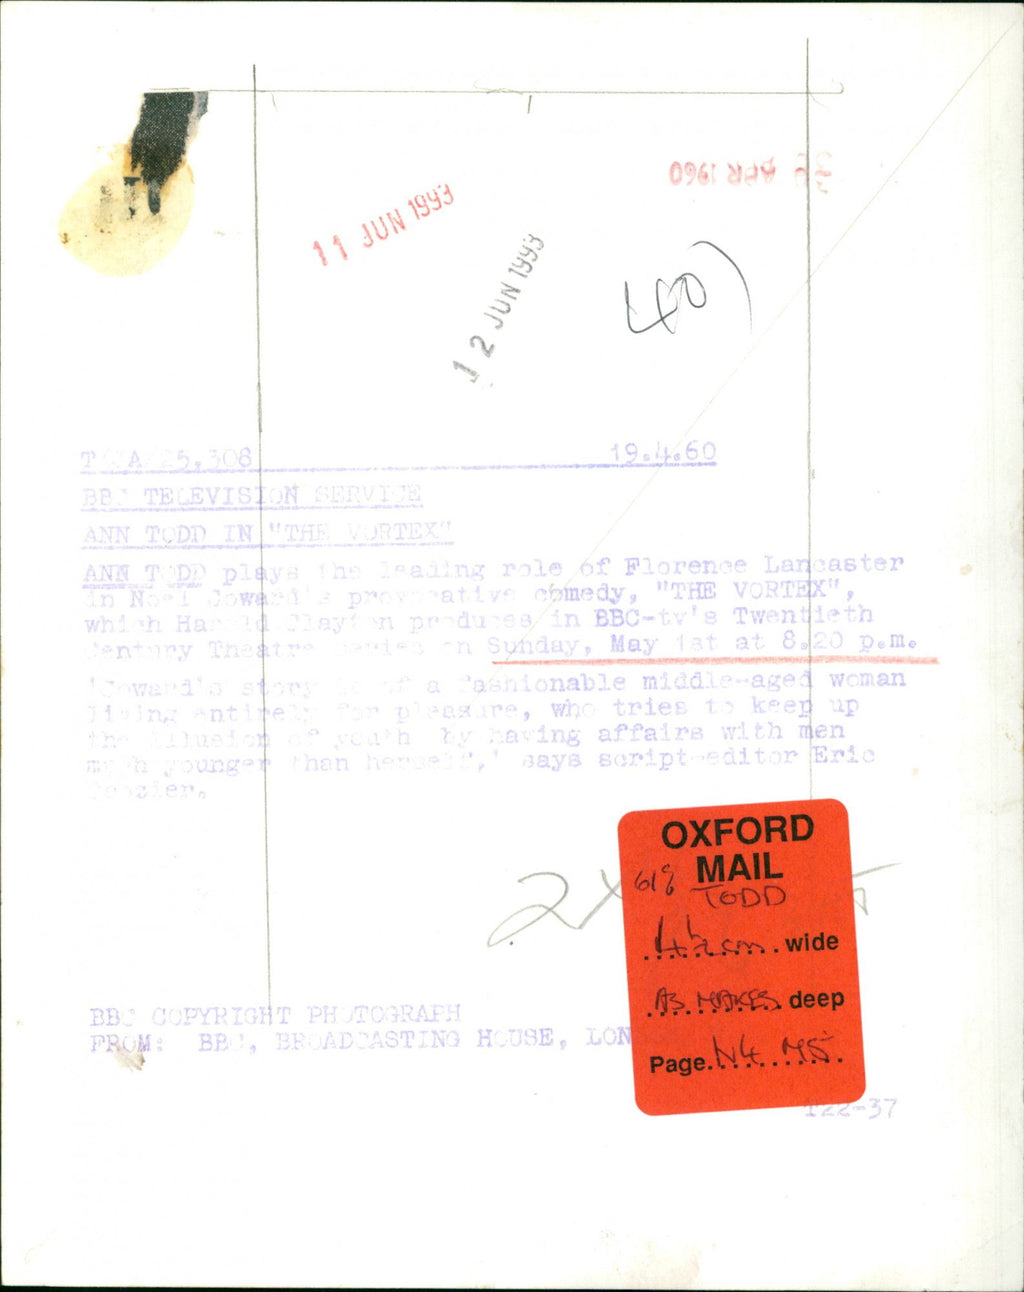 APR 1960
11 JUN 1993
12 JUN 1993
40)
19.4.60
BBC TELEVISION SERVICE
ANN TODD IN "THE VORTEX"
ANN TODD plays the leading role of Florence Lancaster
in Noel Coward's provocative comedy, "THE VORTEX",
which Harold Clayton produces in BBC-tv's Twentieth
Century Theatre series on Sunday, May 1st at 8.20 p.m.
'Coward's story is of a fashionable middle-aged woman
living entirely for pleasure, who tries to keep up
the illusion of youth by having affairs with men
much younger than herself,' says script-editor Eric
Crozier.
2X
OXFORD
MAIL
TODD
4½ cm. wide
AS MAKES deep
Page. N4
BBC COPYRIGHT PHOTOGRAPH
FROM: BBC, BROADCASTING HOUSE, LON
122-37